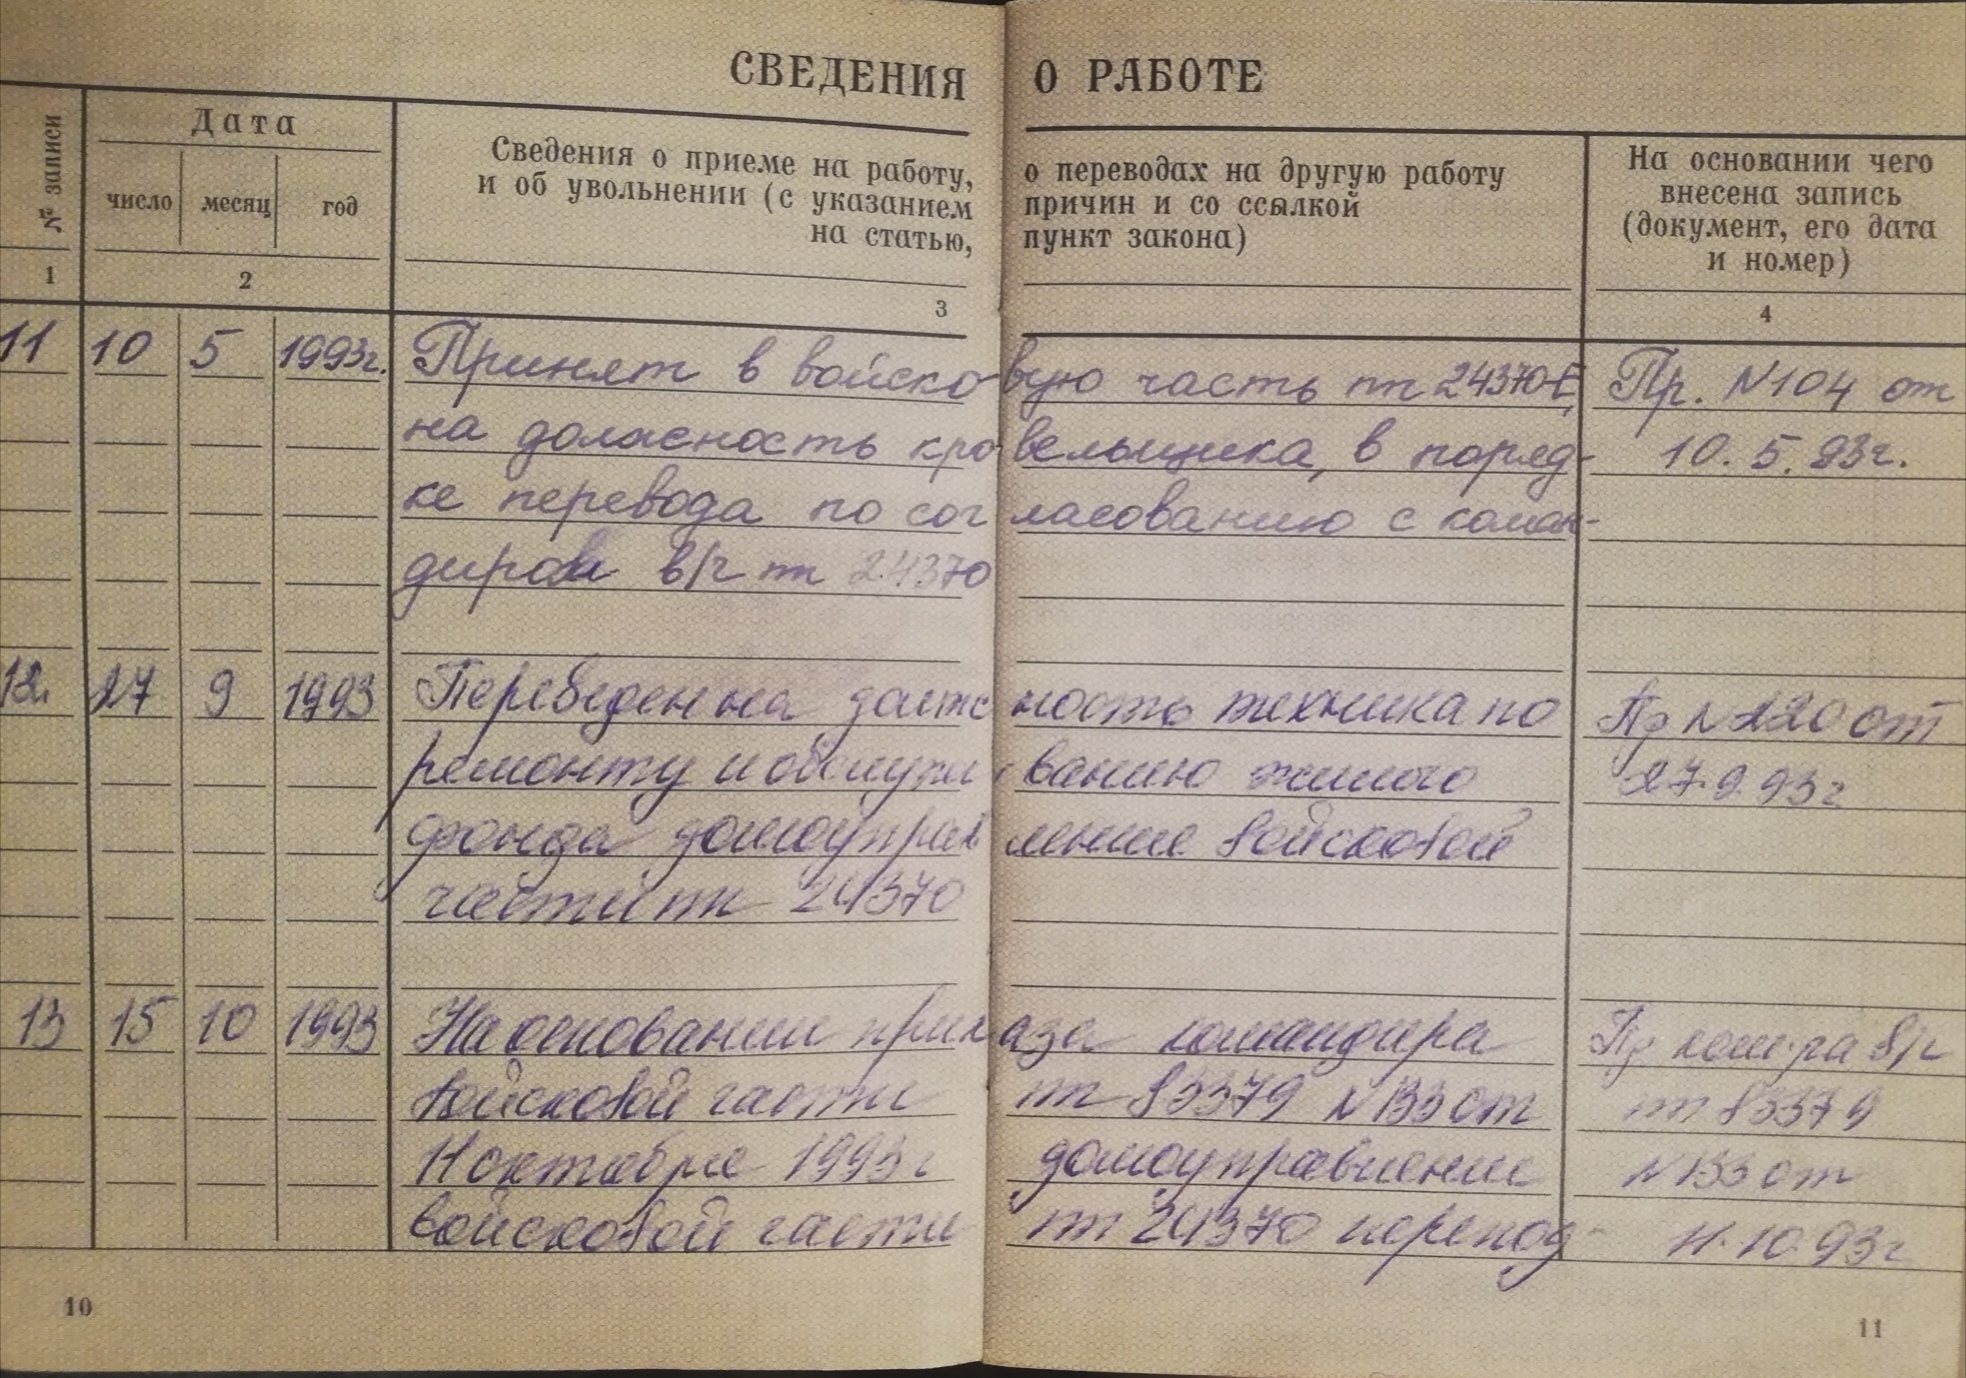 СВЕДЕНИЯ О РАБОТЕ
№ записи
Дата
число месяц год
Сведения о приеме на работу, о переводах на другую работу
и об увольнении (с указанием причин и со ссылкой
на статью, пункт закона)
На основании чего
внесена запись
(документ, его дата
и номер)
1 2 3 4
11 10 5 1993г. Принят в войсковую часть пп 24370-Е, Пр. №104 от
на должность кровельщика, в поряд- 10.5.93г.
ке перевода по согласованию с коман-
диром в/ч пп 24370
12. 27 9 1993 Переведен на должность техника по Пр №220 от
ремонту и обслуживанию жилого 27.9.93г
фонда домоуправление войсковой
части пп 24370
13 15 10 1993 На основании приказа командира Пр ком-ра в/ч
войсковой части пп 83379 №133 от пп 83379
11 октября 1993г домоуправление №133 от
войсковой части пп 24370 перепод- 11.10.93г
10
11